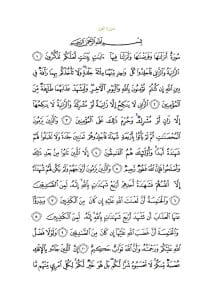 سورة النور
بسم الله الرحمن الرحيم
سورة أنزلناها وفرضناها وأنزلنا فيها آيات بينات لعلكم تذكرون ١
الزانية والزاني فاجلدوا كل واحد منهما مائة جلدة ولا تأخذكم بهما رأفة في
دين الله إن كنتم تؤمنون بالله واليوم الآخر وليشهد عذابهما طائفة من
المؤمنين ٢ الزاني لا ينكح إلا زانية أو مشركة والزانية لا ينكحها
إلا زان أو مشرك وحرم ذلك على المؤمنين ٣ والذين يرمون
المحصنات ثم لم يأتوا بأربعة شهداء فاجلدوهم ثمانين جلدة ولا تقبلوا لهم
شهادة أبدا وأولئك هم الفاسقون ٤ إلا الذين تابوا من بعد ذلك وأصلحوا
فإن الله غفور رحيم ٥ والذين يرمون أزواجهم ولم يكن لهم شهداء
إلا أنفسهم فشهادة أحدهم أربع شهادات بالله إنه لمن الصادقين
٦ والخامسة أن لعنت الله عليه إن كان من الكاذبين ٧ ويدرأ
عنها العذاب أن تشهد أربع شهادات بالله إنه لمن الكاذبين ٨
والخامسة أن غضب الله عليها إن كان من الصادقين ٩ ولولا فضل
الله عليكم ورحمته وأن الله تواب حكيم ١٠ إن الذين جاءوا بالإفك
عصبة منكم لا تحسبوه شرا لكم بل هو خير لكم لكل امرئ منهم ما